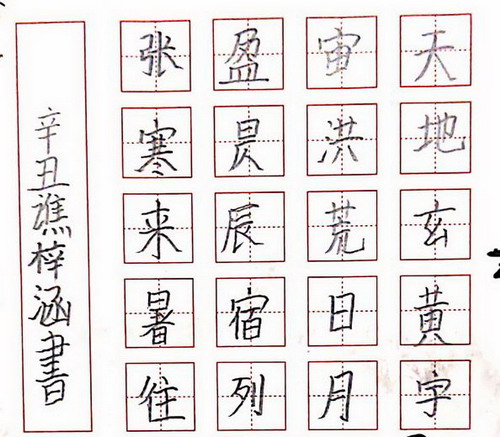 天地玄黄宇
宙洪荒日月
盈昃辰宿列
张寒来暑往
辛丑谯梓涵書